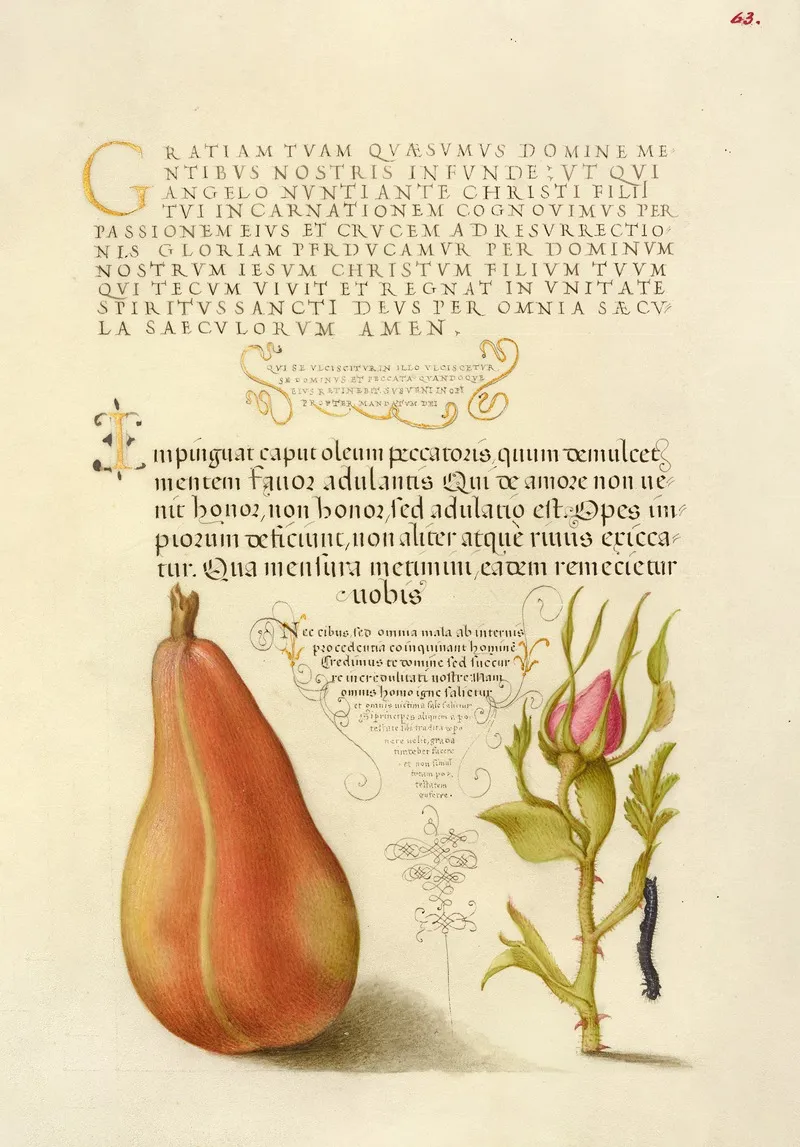 63.
GRATIAM TVAM QVÆSVMVS DOMINE ME-
NTIBVS NOSTRIS INFVNDE; VT QVI
ANGELO NVNTIANTE CHRISTI FILII
TVI INCARNATIONEM COGNOVIMVS PER
PASSIONEM EIVS ET CRVCEM AD RESVRRECTIO-
NIS GLORIAM PERDVCAMVR PER DOMINVM
NOSTRVM IESVM CHRISTVM FILIVM TVVM
QVI TECVM VIVIT ET REGNAT IN VNITATE
SPIRITVS SANCTI DEVS PER OMNIA SÆCV-
LA SAECVLORVM AMEN.
QVI SE VLCISCITVR, IN ILLO VLCISCETVR
SE DOMINVS ET PECCATA QVANDOQVE
EIVS RETINEBIT. SVBVENI INOPI
PROPTER MANDATVM DEI
Impinguat caput oleum peccatoris, quum demulcet
mentem favor adulantis Qui de amore non ue-
nit honor, non honor, sed adulatio est. Opes im-
piorum deficiunt, non aliter atque riuus exicca-
tur. Qua mensura metimini, eadem remecietur
uobis
Nec cibus, sed omnia mala ab internis
procedentia coinquinant hominē
Credimus te domine sed succur
re incredulitati nostre. Nam
omnis homo igne salietur
et omnis uictima sale salietur
Si principes aliquem a po-
testate tibi tradita
nere uelit, gratia
et non simul
totam po-
testatem
auferre.